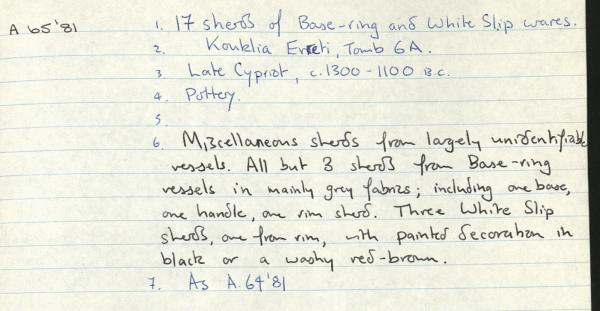 A 65'81
1. 17 sherds of Base-ring and White Slip wares.
2. Kouklia Evreti, Tomb 6A.
3. Late Cypriot, c.1300-1100 B.C.
4. Pottery.
5.
6. Miscellaneous sherds from largely unidentifiable
vessels. All but 3 sherds from Base-ring
vessels in mainly grey fabrics; including one base,
one handle, one rim sherd. Three White Slip
sherds, one from rim, with painted decoration in
black or a washy red-brown.
7. As A.64'81